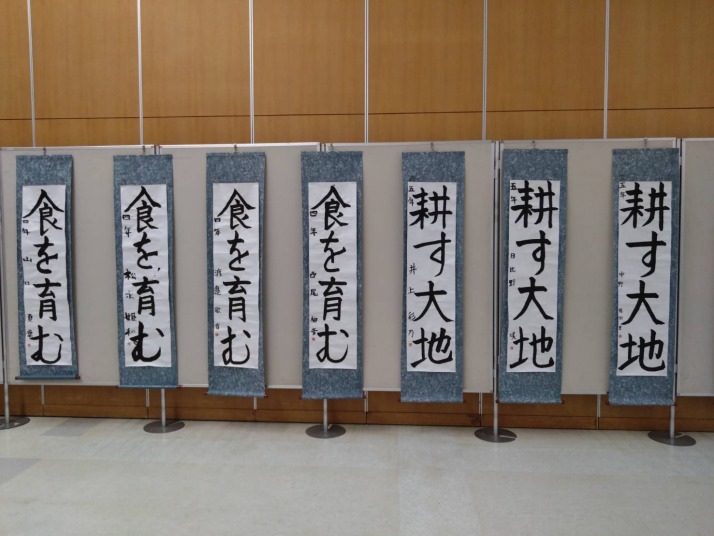 食を育む
四年 山口
食を育む
四年 松永
食を育む
四年 渡邉
食を育む
四年
耕す大地
五年 井上彩乃
耕す大地
五年 日比野
耕す大地
五年 中野